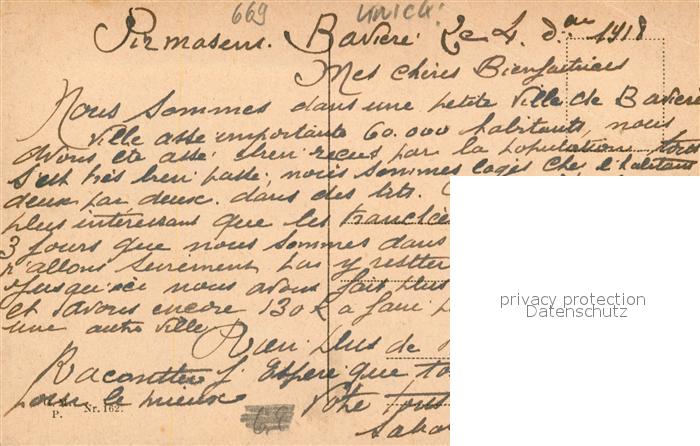 669 unich:
Pirmasens. Bavière Le 4. Xbre 1918
Mes chères Bienfaitrices
Nous sommes dans une petite ville de Bavière
ville assé importante 60.000 habitants, nous
avons été assé bien reçus par la population tous
s'est très bien passé. nous sommes logés che l'habitant
deux par deux. dans des lits.
plus intéressant que les tranchées
3 jours que nous sommes dans
n'allons surement pas y restter
jusqu'ici nous avons fait plus
et savons encore 130 K a faire
une autre ville
Rien plus de
Racontter j'Espère que to
pour le mieux Votre tous
P. Nr. 162. 68
privacy protection
Datenschutz